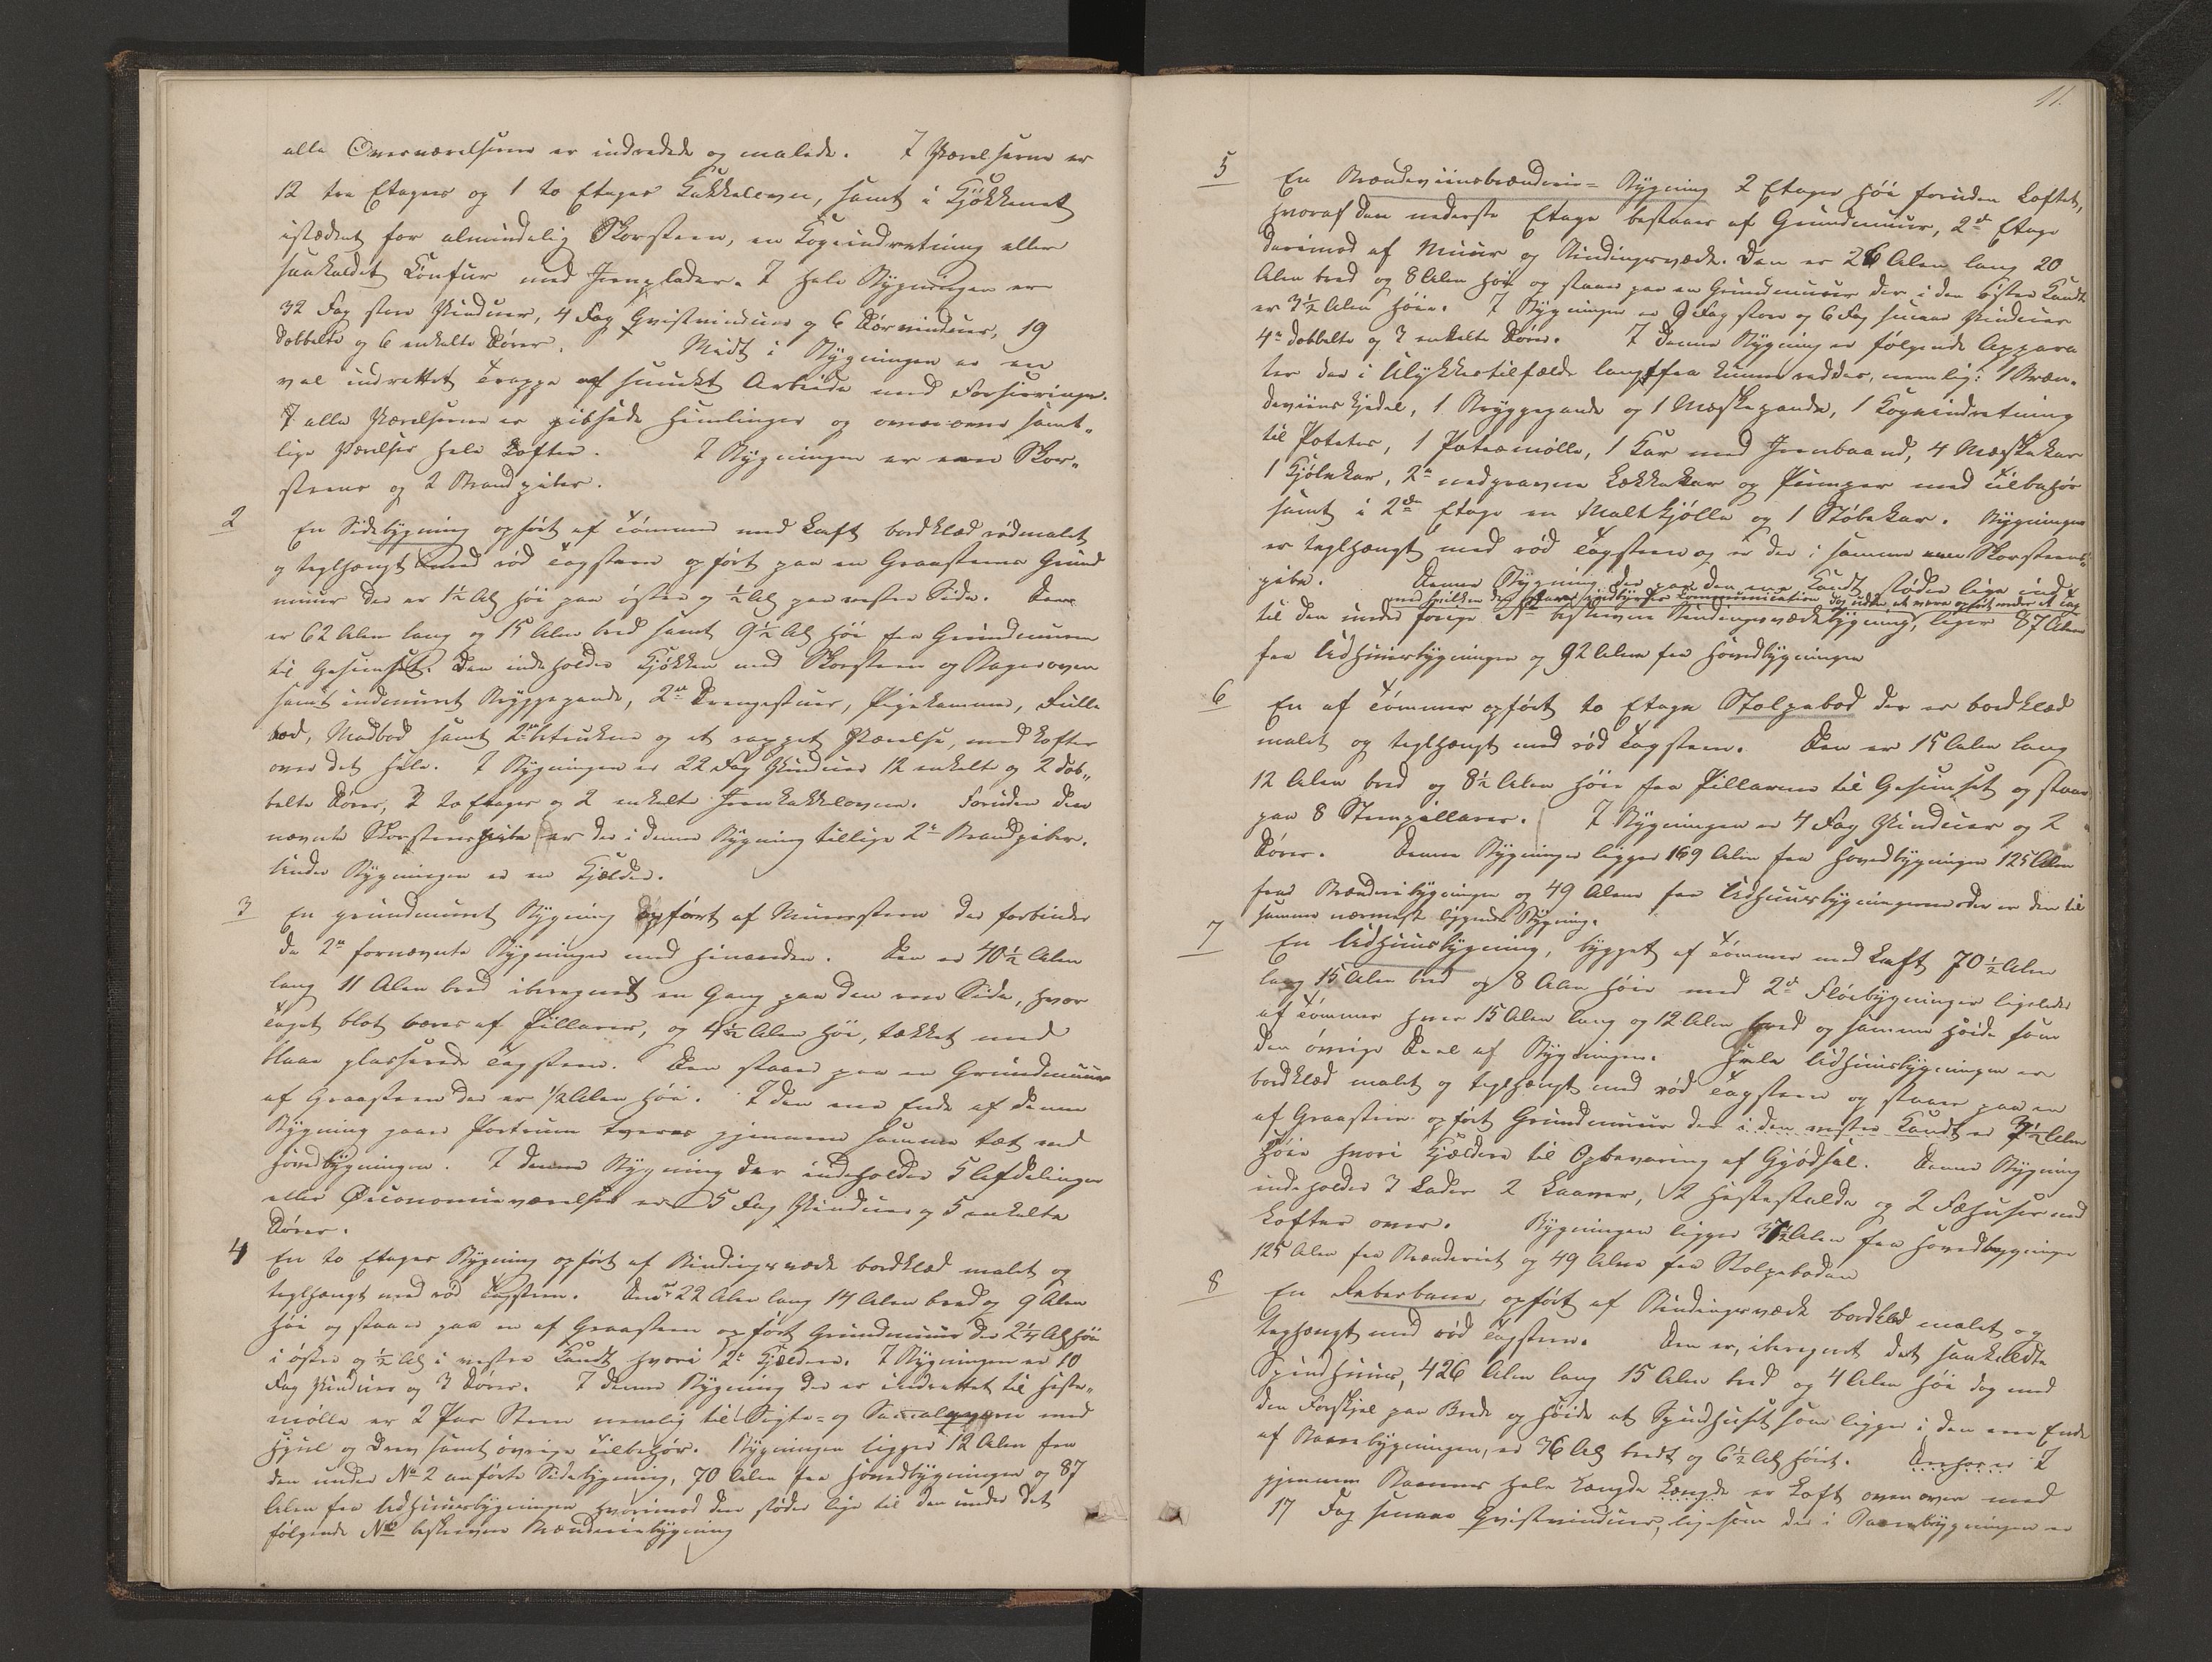 alle Overværelserne er indredede og malede. I Værelserne er
12 tre Etagers og 1 to Etages Kakkelovne, samt i Kjøkkenet
istædet for almindelig Skorsteen, en Kogeindretning eller
saakaldet Konfur med Jernplader. I hele Bygningen er
32 Fag store Vinduer, 4 Fag Qvistvinduer og 6 Dørvinduer, 19
dobbelte og 6 enkelte Dører. Midt i Bygningen er en
vel indrettet Trappe af smukt Arbeide med Forsieringer.
I alle Værelserne er gibsede Himlinger og ovenover samt„
lige Værelser hele Lofter. I Bygningen er een Skor„
steens og 2 Brandpiber.
2 En Sidebygning opført af Tømmer med Laft bordklæd rødmalet
og teglhængt med rød Tagsteen opført paa en Graasteens Grund
muur der er 1½ Al høi paa østre og ½ Al paa vestre Side. Den
er 62 Alen lang og 15 Alen bred samt 9½ Al høi fra Grundmuren
til Gesimset. Den indeholder Kjøkken med Skorsteen og Bagerovn
samt indmuret Bryggepande, 2de Drengestuer, Pigekammer, Rulle
bod, Madbod samt 2de betrukne og et rappet Værelse, med Lofter
over det hele. I Bygningen er 22 Fag Vinduer 12 enkelte og 2 dob„
belte Dører, 2 to Etages og 2 enkelte Jernkakkelovne. Foruden den
nævnte Skorsteenspibe er der i denne Bygning tillige 2de Brandpiber.
Under Bygningen er en Kjælder.
3 En grundmuret Bygning opført af Muursteen der forbinder
de 2de fornævnte Bygninger med hinanden. Den er 40½ Alen
lang 11 Alen bred iberegnet en Gang paa den ene Side, hvor
Taget blot bæres af Pillarer, og 4½ Alen høi, tækket med
blaae glasserede Tagsteen. Den staaer paa en Grundmuur
af Graasteen der er ½ Alen høi. I den ene Ende af denne
Bygning gaaer Portrum tvers gjennem samme tæt ved
Hovedbygningen. I denne Bygning der indeholder 5 Afdelinger
eller Øconomieværelser er 5 Fag Vinduer og 5 enkelte
Dører.
4 En to Etages Bygning opført af Bindingsværk bordklæd malet og
teglhængt med rød Tagsteen. Den er 22 Alen lang 14 Alen bred og 9 Alen
høi og staaer paa en af Graasteen opført Grundmuur der 2¼ Al høi
i østre og ½ Al i vestre Kandt hvori 2de Kjældere. I Bygningen er 10
Fag Vinduer og 3 Dører. I denne Bygning der er indrettet til Heste„
mølle er 2 Par Steen nemlig til Sigte- og Sammalqværn med
Hjul og Drev samt øvrige Tilbehør. Bygningen ligger 12 Alen fra
den under No 2 anførte Sidebygning, 70 Alen fra Hovedbygningen og 87
Alen fra Udhuusbygningen hvorimod den støder lige til den under det
følgende No beskrevne Brænderiebygning
11.
5 En Brændeviinsbrænderie= Bygning 2 Etager høi foruden Loftet,
hvoraf den nederste Etage bestaaer af Grundmuur, 2d Etage
derimod af Muur og Bindingsværk. Den er 26 Alen lang 20
Alen bred og 8 Alen høi og staaer paa en Grundmuur der i den østre Kandt
er 3½ Alen høi. I Bygningen er 9 Fag store og 6 Fag smaae Vinduer
4re dobbelte og 3 enkelte Dører. I denne Bygning er følgende Appara
ter der i Ulykkestilfælde lengst fra kunne reddes, nemlig: 1 Bræn„
deviins Kjedel, 1 Bryggepande og 1 Mæskepande, 1 Kogeindretning
til Poteter, 1 Potetmølle, 1 Kar med Jernbaand, 4 Mæskekar
1 Kjølekar, 2de nedgravne Lækkekar og Pumper med Tilbehør
samt i 2den Etage en Maltkjølle og 1 Støbekar. Bygningen
er teglhængt med rød Tagsteen og er der i samme een Skorsteens„
pibe. Denne Bygning der paa den ene Kandt støder lige ind
med hvilken den staaer i indbyrdes Communication dog uden at være opført under et Tag
til den under forrige No beskrevne Bindingsværkbygning, ligger 87 Alen
fra Udhuusbygningen og 92 Alen fra Hovedbygningen
6 En af Tømmer opført to Etages Stolpebod der er bordklæd
malet og teglhængt med rød Tagsteen. Den er 15 Alen lang
12 Alen bred og 8½ Alen høi fra Pillarene til Gesimset og staaer
paa 8 Steenpillarer. I Bygningen er 4 Fag Vinduer og 2
Dører. Denne Bygning ligger 169 Alen fra Hovedbygningen 125 Alen
fra Brænderibygningen og 49 Alen fra Udhuusbygningen der er den til
samme nærmest liggende Bygning.
7 En Udhuusbygning, bygget af Tømmer med Laft 70½ Alen
lang 15 Alen bred og 8 Alen høi med 2de Fløibygninger ligeledes
af Tømmer hver 15 Alen lang og 12 Alen bred og samme Høide som
den øvrige Deel af Bygningen. Hele Udhuusbygningen er
bordklæd malet og teglhængt med rød Tagsteen og staaer paa en
af Graasteen opført Grundmuur der i den vestre Kandt er 3½ Alen
høi hvori Kjældere til Opbevaring af Gjødsel. Denne Bygning
indeholder 3 Lader 2 Laaver, 2 Hestestalde og 2 Fæhuse med
Lofter over. Bygningen ligger 37½ Alen fra Hovedbygningen
125 Alen fra Brænderiet og 49 Alen fra Stolpeboden
8 En Reberbane, opført af Bindingsværk bordklæd malet og
teghængt med rød Tagsteen. Den er, iberegnet det saakaldte
Spindhuus, 426 Alen lang 15 Alen bred og 4 Alen høi dog med
den Forskjel paa Brede og Høide at Spindhuset som ligger i den ene Ende
af Banebygningen, er 36 Al bredt og 6½ Al høit. Den har er I
gjennem Banens hele Længde Længde er Loft ovenover med
17 Fag smaae Qvistvinduer, ligesom der i Banebygningen er